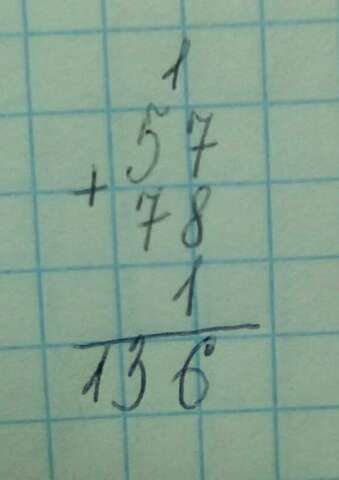 1
57
+
78
1
136